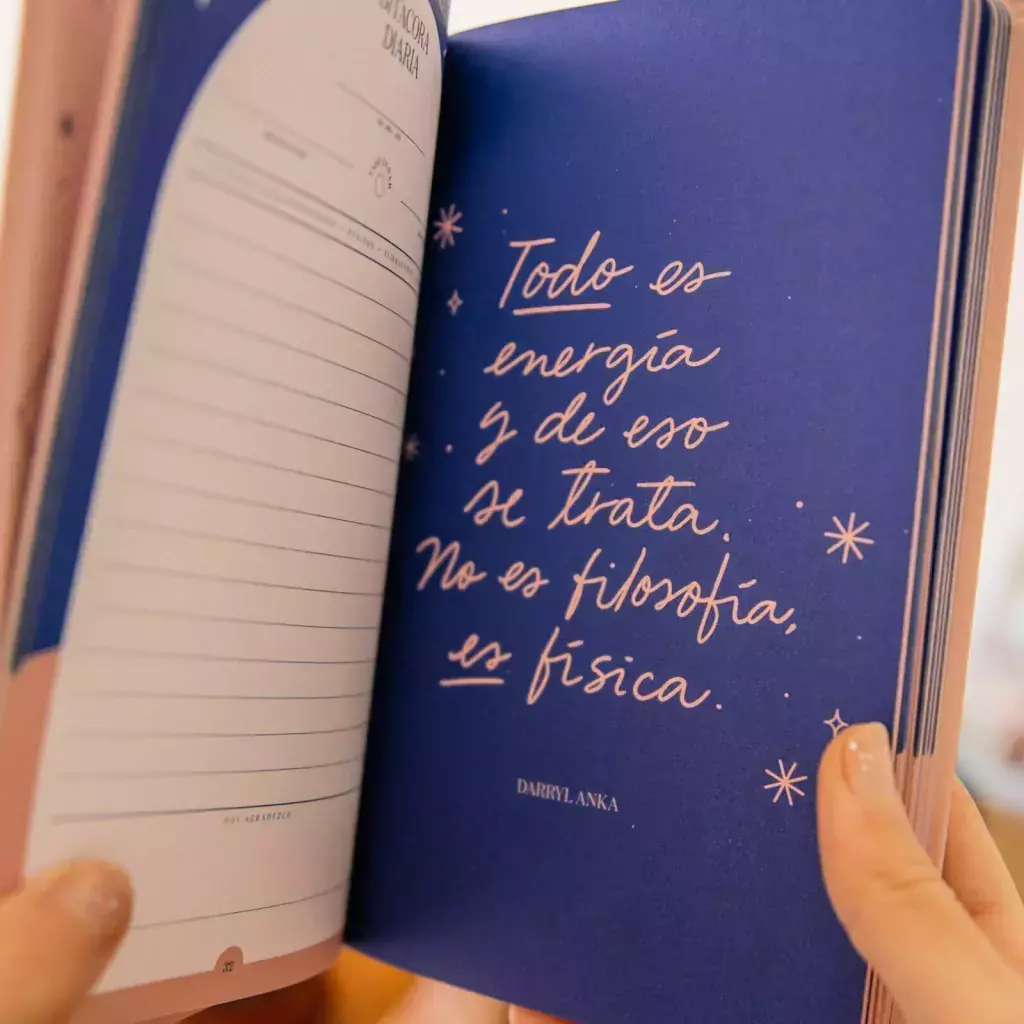 BITACORA
DIARIA
HOY AGRADEZCO
32
Todo es
energía
y de eso
se trata.
No es filosofía,
es física.
DARRYL ANKA